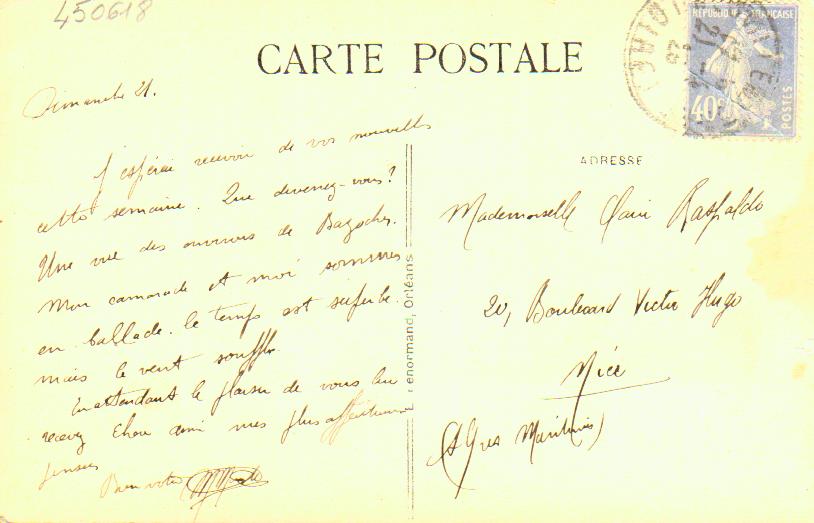 450618
CARTE POSTALE
REPUBLIQUE FRANÇAISE
40c
POSTES
21
Dimanche 21.
J'espérai recevoir de vos nouvelles
cette semaine. Que devenez-vous?
Une vue des environs de Bazoches.
Mon camarade et moi sommes
en ballade. le temps est superbe.
mais le vent souffle.
En attendant le plaisir de vous lire
recevez Chère amie mes plus affectueuses
pensées
Bien votre
E. Lenormand, Orléans
ADRESSE
Mademoiselle Claire Raspaldo
20, Boulevard Victor Hugo
Nice
(Alpes Maritimes)